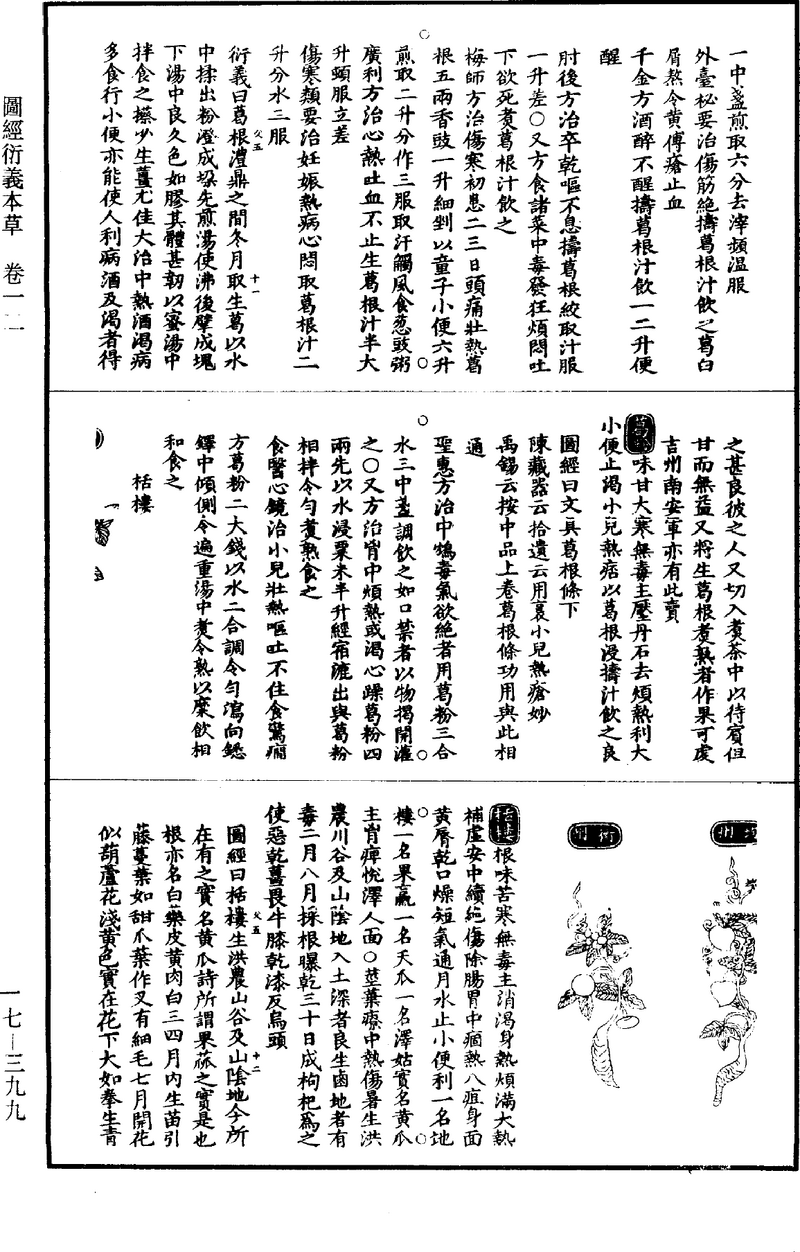 圖經衍義本草　卷一
一七－三九九
一中盞煎取六分去滓頻温服
外臺秘要治傷筋絶擣葛根汁飲之葛白
屑熬令黄傅瘡止血
千金方酒醉不醒擣葛根汁飲一二升便
醒
肘後方治卒乾嘔不息擣葛根絞取汁服
一升差○又方食諸菜中毒發狂煩悶吐
下欲死煑葛根汁飲之
梅師方治傷寒初患二三日頭痛壯熱葛
根五兩香豉一升細剉以童子小便六升
煎取二升分作三服取汗觸風食葱豉粥
廣利方治心熱吐血不止生葛根汁半大
升頓服立差
傷寒類要治妊娠熱病心悶取葛根汁二
升分水三服
衍義曰葛根澧鼎之間冬月取生葛以水
中揉出粉澄成垜先煎湯使沸後擘成塊
下湯中良久色如膠其體甚韌以蜜湯中
拌食之擦少生薑尤佳大治中熱酒渴病
多食行小便亦能使人利病酒及渴者得
之甚良彼之人又切入煑茶中以待賓但
甘而無益又將生葛根煑熟者作果可䖏
吉州南安軍亦有此賣
葛粉味甘大寒無毒主壓丹石去煩熱利大
小便止渴小兒熱痞以葛根浸擣汁飲之良
圖經曰文具葛根條下
陳藏器云拾遺云用裛小兒熱瘡妙
禹錫云按中品上卷葛根條功用與此相
通
聖惠方治中鴆毒氣欲絶者用葛粉三合
水三中盞調飲之如口禁者以物揭開灌
之○又方治胷中煩熱或渴心躁葛粉四
兩先以水浸粟米半升經宿漉出與葛粉
相拌令匀煑熟食之
食醫心鏡治小兒壯熱嘔吐不住食驚癇
方葛粉二大錢以水二合調令匀瀉向鋱
鐸中傾側令遍重湯中煑令熟以糜飲相
和食之
栝樓
衡州
栝樓根味苦寒無毒主消渴身熱煩滿大熱
補虚安中續絶傷除腸胃中痼熱八疸身面
黄脣乾口燥短氣通月水止小便利一名地
樓一名果蠃一名天瓜一名澤姑實名黄瓜
主胷痺悅澤人面○莖葉療中熱傷暑生洪
農川谷及山陰地入土深者良生鹵地者有
毒二月八月採根曝乾三十日成枸杞爲之
使惡乾薑畏牛膝乾漆反烏頭
圖經曰栝樓生洪農山谷及山陰地今所
在有之實名黄瓜詩所謂果蓏之實是也
根亦名白藥皮黄肉白三四月内生苗引
藤蔓葉如甜瓜葉作叉有細毛七月開花
似葫蘆花淺黄色實在花下大如拳生青